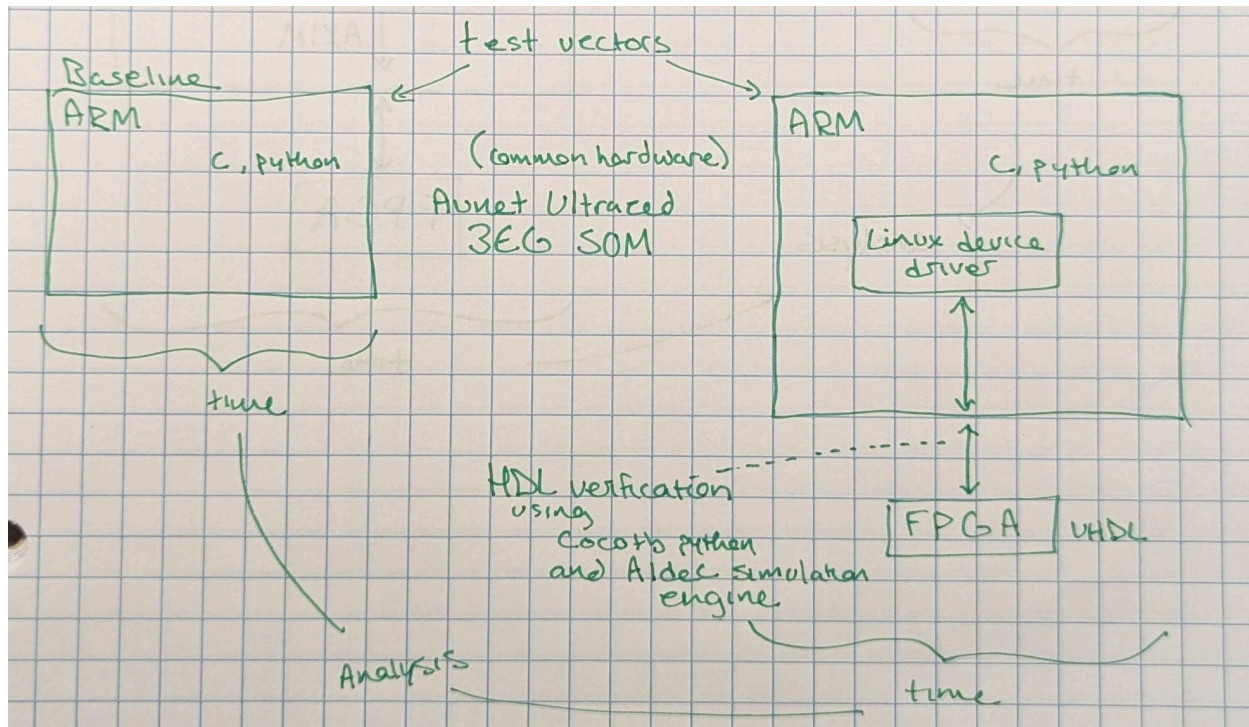 test vectors
Baseline
ARM
C, python
(common hardware)
Avnet Ultrazed
3EG SOM
ARM
C, python
Linux device
driver
time
HDL verfication
using
Cocotb python
and Aldec simulation
engine
FPGA
VHDL
Analysis
time